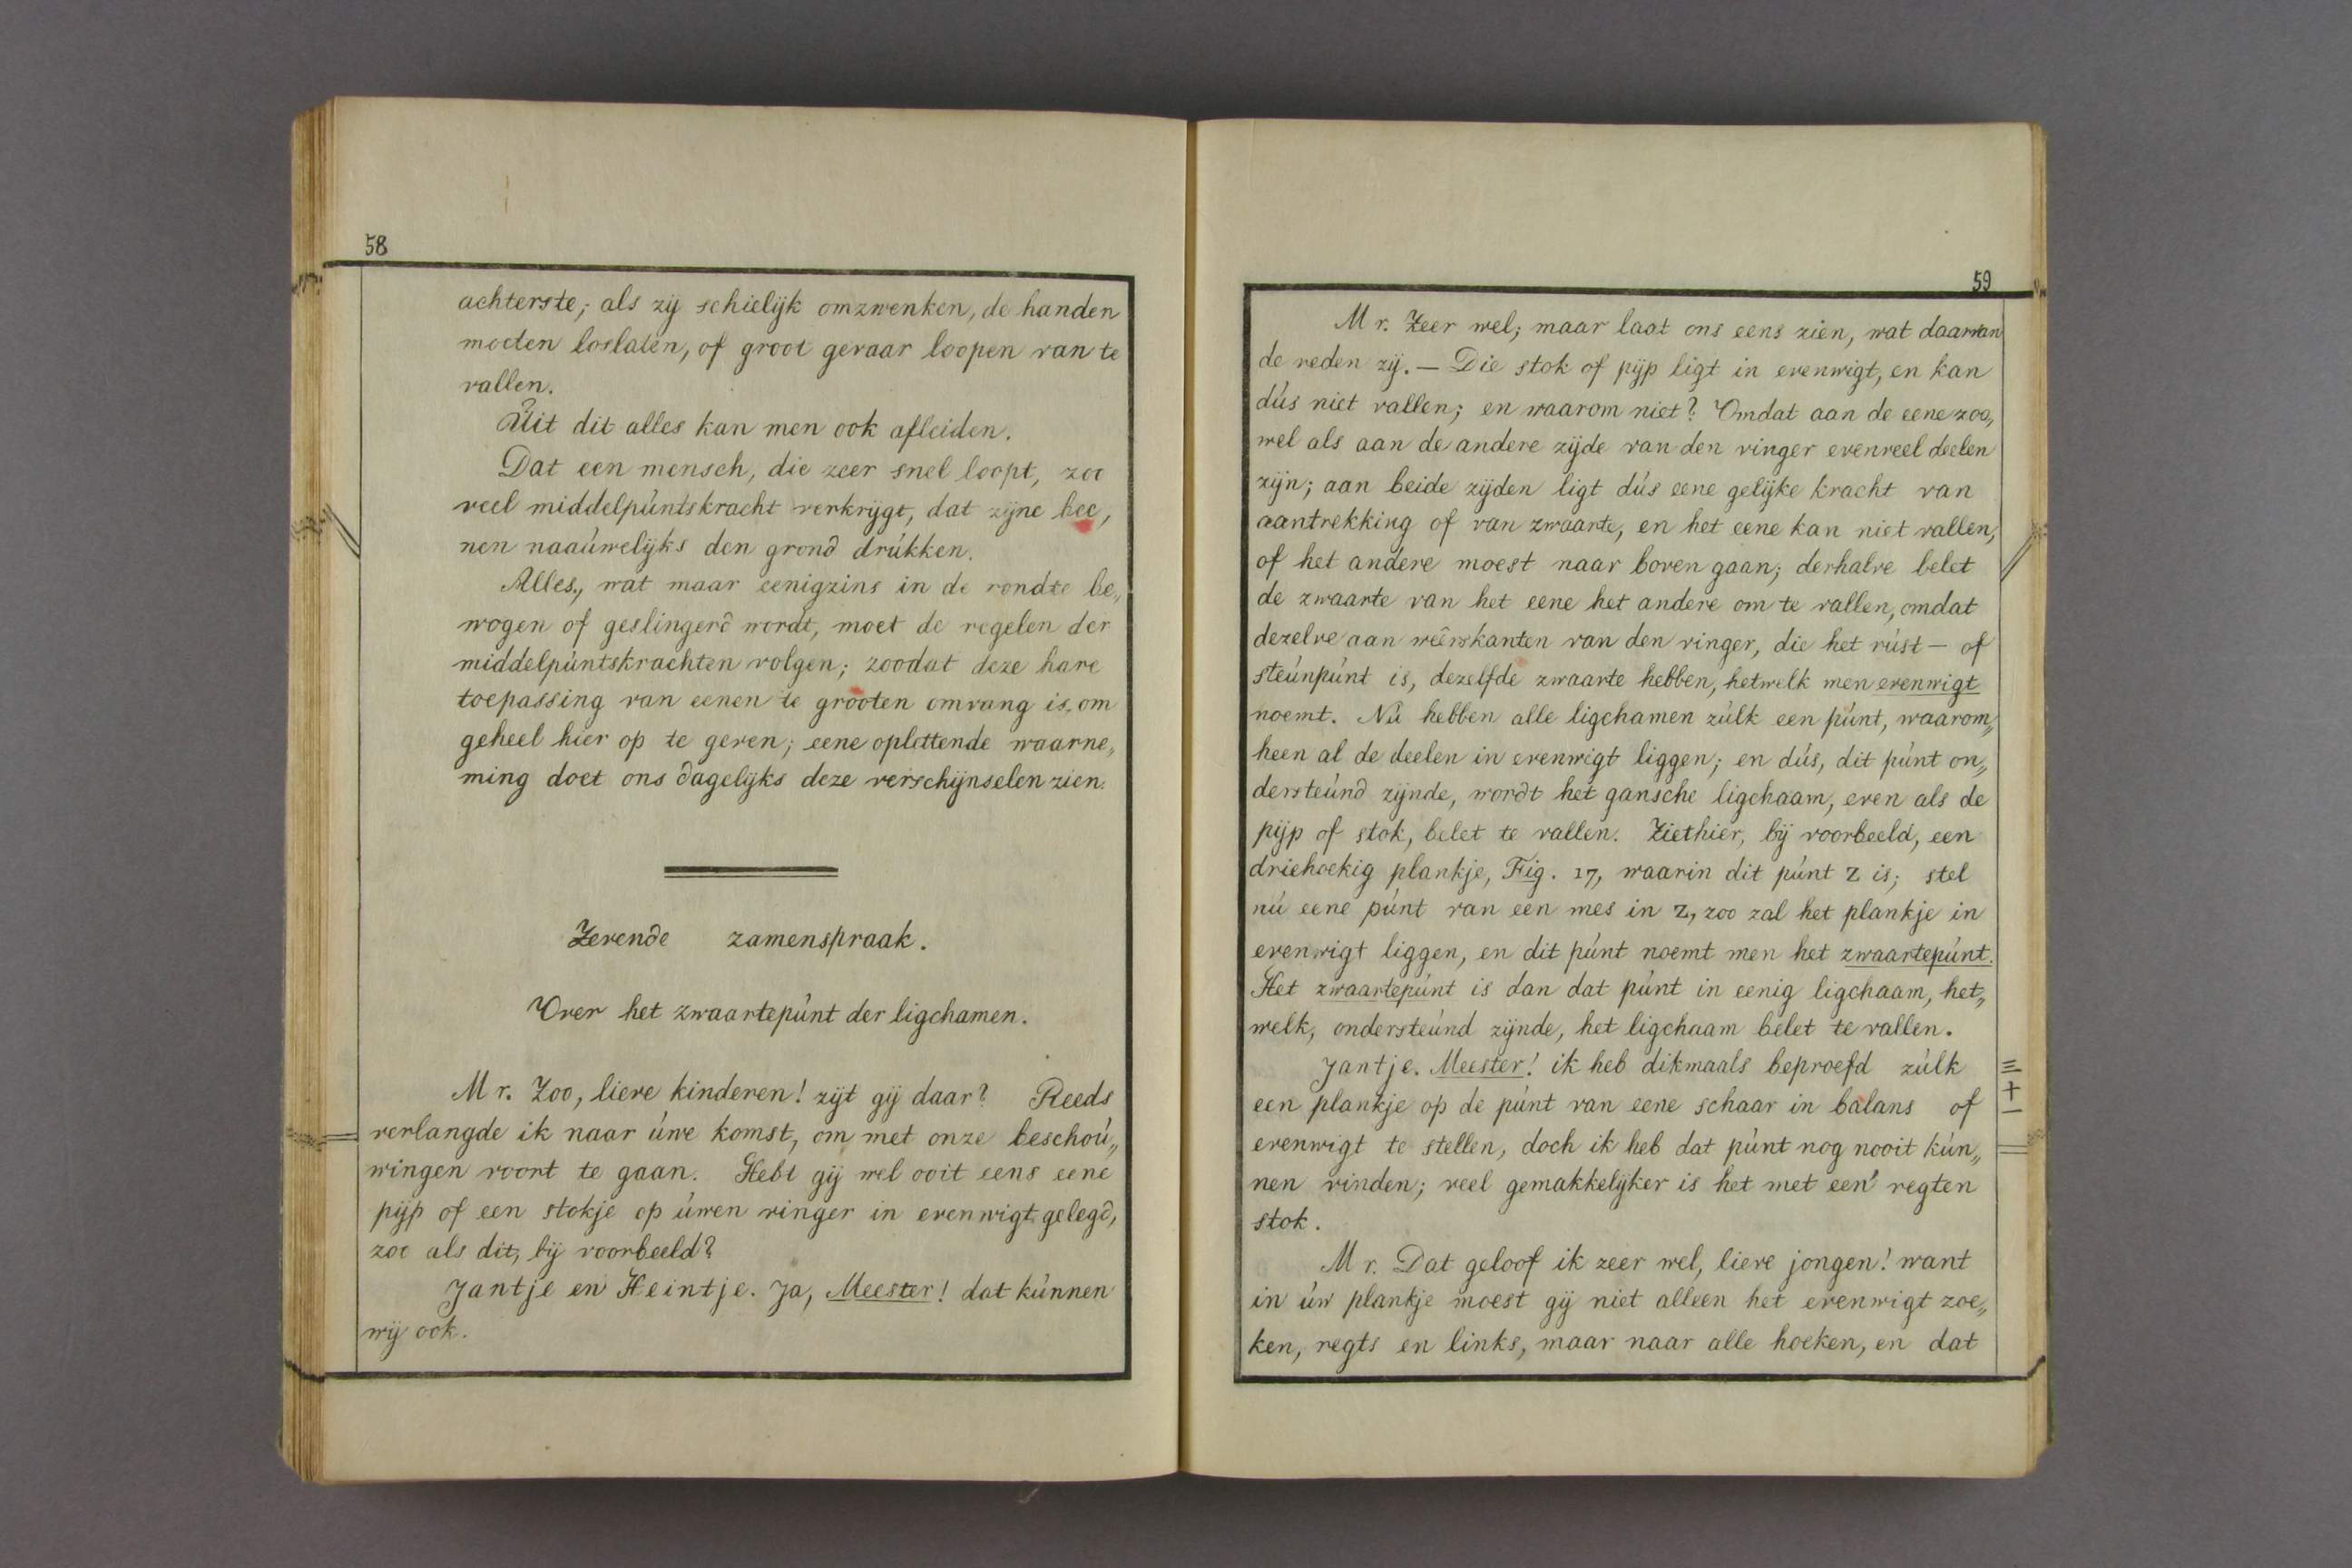 58
achterste; als zij schielijk omzwenken, de handen
moeten loslaten, of groot gevaar loopen van te
vallen.
Uit dit alles kan men ook afleiden.
Dat een mensch, die zeer snel loopt, zoo
veel middelpúntskracht verkrijgt, dat zijne bee„
nen naaúwelijks den grond drúkken.
Alles, wat maar eenigzins in de rondte be„
wogen of geslingerd wordt, moet de regelen der
middelpúntskrachten volgen; zoodat deze hare
toepassing van eenen te grooten omvang is, om
geheel hier op te geven; eene oplettende waarne„
ming doet ons dagelijks deze verschijnselen zien.
Zevende zamenspraak.
Over het zwaartepúnt der ligchamen.
Mr. Zoo, lieve kinderen! zijt gij daar? Reeds
verlangde ik naar úwe komst, om met onze beschoú„
wingen voort te gaan. Hebt gij wel ooit eens eene
pijp of een stokje op úwen vinger in evenwigt gelegd,
zoo als dit, bij voorbeeld?
Jantje en Heintje. Ja, Meester! dat kúnnen
wij ook.
59
Mr. Zeer wel; maar laat ons eens zien, wat daarvan
de reden zij. — Die stok of pijp ligt in evenwigt, en kan
dús niet vallen; en waarom niet? Omdat aan de eene zoo„
wel als aan de andere zijde van den vinger evenveel deelen
zijn; aan beide zijden ligt dús eene gelijke kracht van
aantrekking of van zwaarte, en het eene kan niet vallen,
of het andere moest naar boven gaan; derhalve belet
de zwaarte van het eene het andere om te vallen, omdat
dezelve aan weêrskanten van den vinger, die het rúst — of
steúnpúnt is, dezelfde zwaarte hebben, hetwelk men evenwigt
noemt. Nú hebben alle ligchamen zúlk een púnt, waarom„
heen al de deelen in evenwigt liggen; en dús, dit púnt on„
dersteúnd zijnde, wordt het gansche ligchaam, even als de
pijp of stok, belet te vallen. Ziethier, bij voorbeeld, een
driehoekig plankje, Fig. 17, waarin dit púnt Z is; stel
nú eene púnt van een mes in Z, zoo zal het plankje in
evenwigt liggen, en dit púnt noemt men het zwaartepúnt.
Het zwaartepúnt is dan dat púnt in eenig ligchaam, het„
welk, ondersteúnd zijnde, het ligchaam belet te vallen.
Jantje. Meester! ik heb dikmaals beproefd zúlk
een plankje op de púnt van eene schaar in balans of
evenwigt te stellen, doch ik heb dat púnt nog nooit kún„
nen vinden; veel gemakkelijker is het met een' regten
stok.
Mr. Dat geloof ik zeer wel, lieve jongen! want
in úw plankje moest gij niet alleen het evenwigt zoe„
ken, regts en links, maar naar alle hoeken, en dat